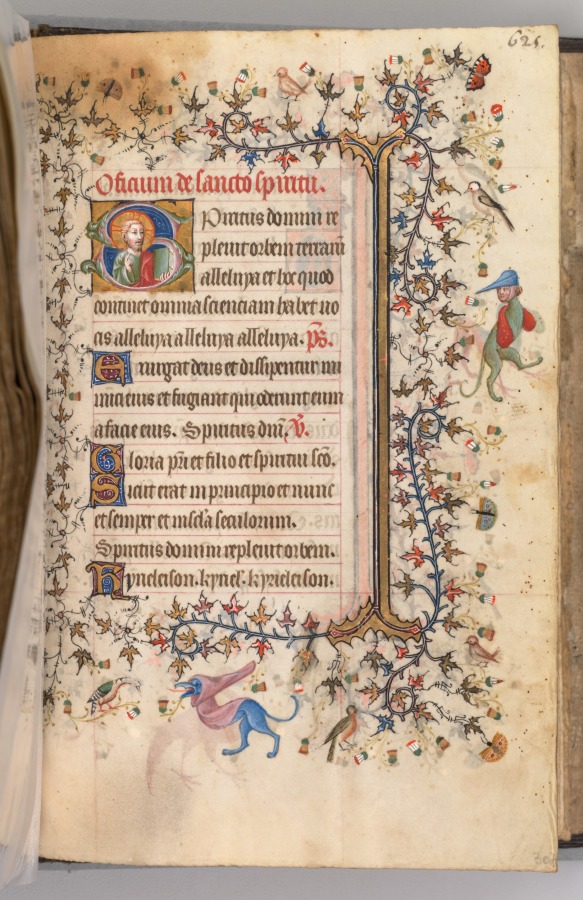 625.
Oficium de sancto spiritu.
Spiritus domini re
pleuit orbem terrarū
alleluya et hoc quod
continet omnia scienciam habet uo
cis alleluya alleluya alleluya. p̄s.
Exurgat deus et dissipentur ini
mici eius et fugiant qui oderunt eum
a facie eius. Spiritus dn̄i. v̄.
Gloria pr̄i et filio et spiritui sc̄o.
Sicut erat in principio et nunc
et semper et in sc̄la seculorum.
Spiritus domini repleuit orbem.
Kyrieleison. kyriel'. kyrieleison.